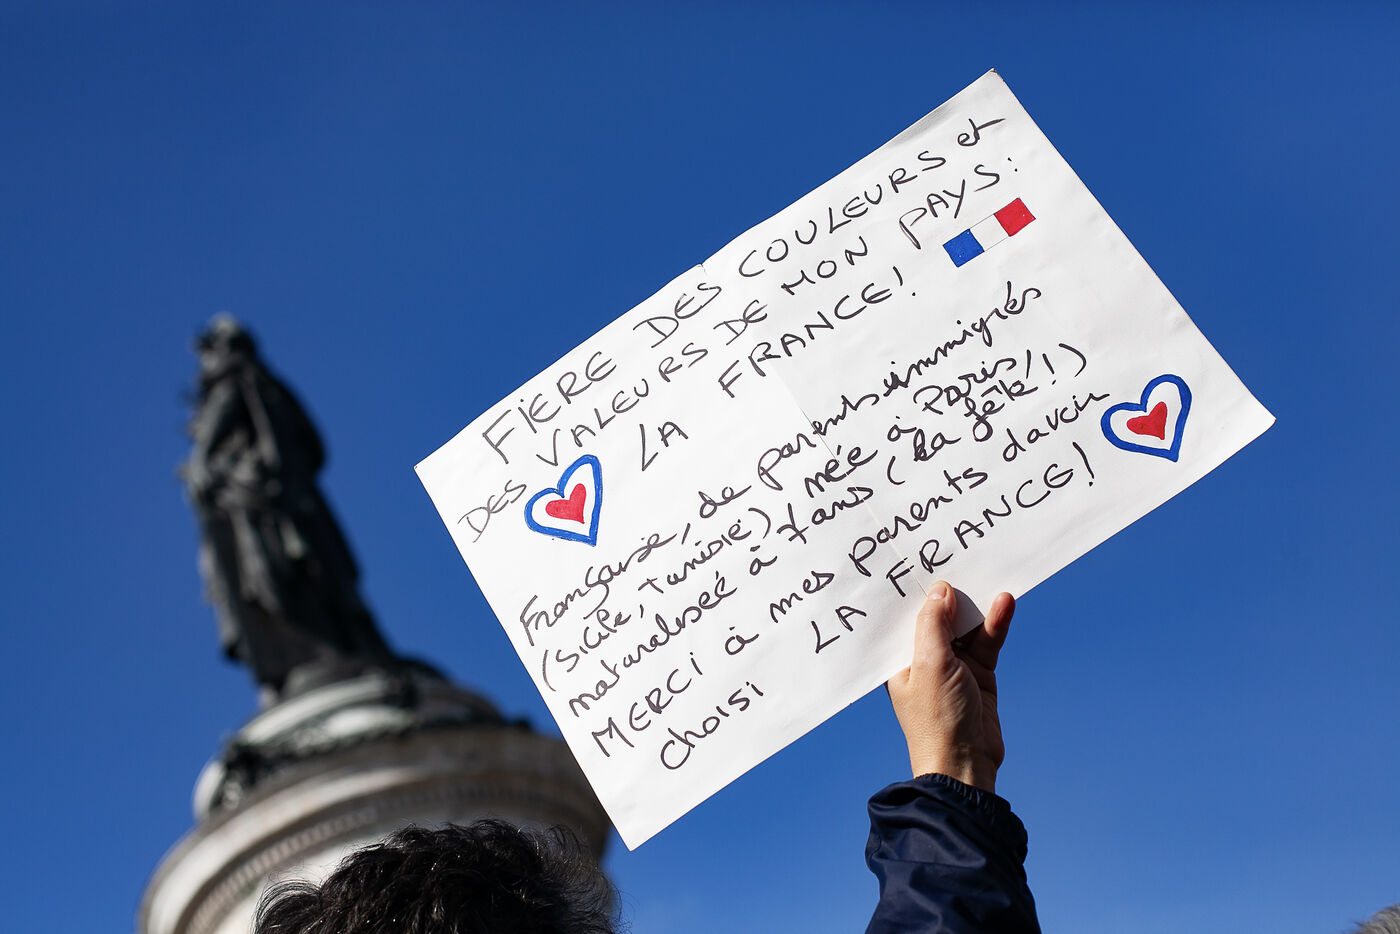 FIERE DES COULEURS et
DES VALEURS DE MON PAYS :
LA FRANCE !
Française, de parents immigrés
(Sicile, Tunisie) née à Paris,
naturalisée à 7 ans (la fête !)
MERCI à mes parents d'avoir
choisi LA FRANCE !